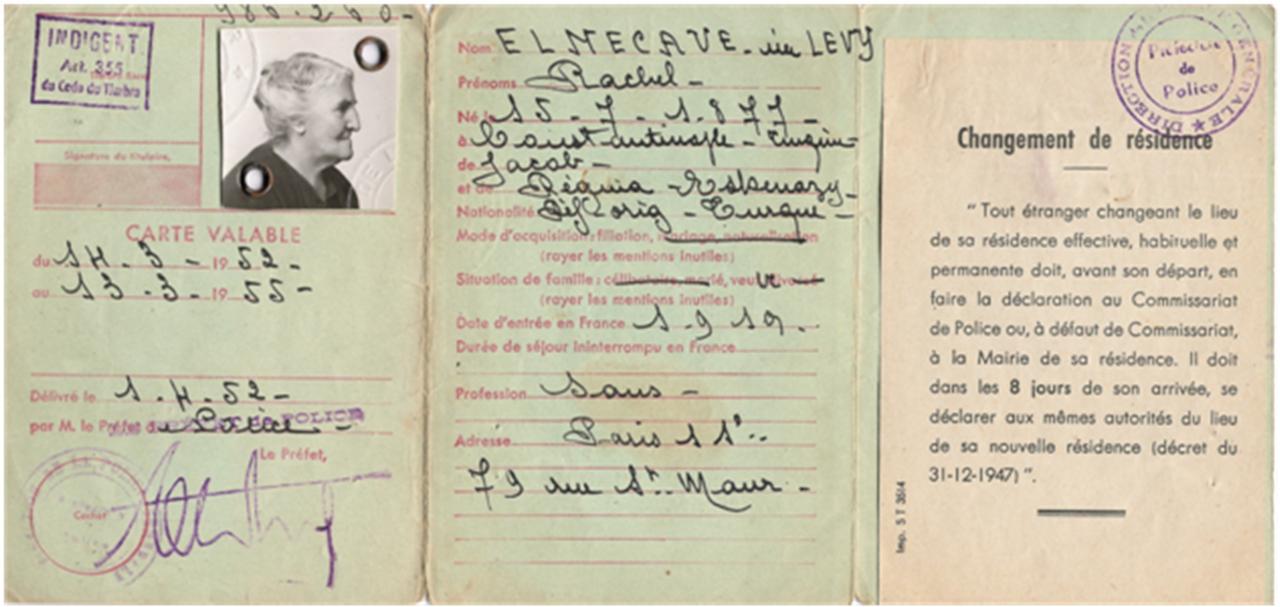 986.260-
INDIGENT
Art. 355
du Code du Timbre
Signature du titulaire,
CARTE VALABLE
du 14. 3 - 1952-
au 13-3-1955-
Délivré le 1.4.52-
par M. le Préfet de Police -
POLICE
Le Préfet,
Cachet
Nom ELNECAVE née LEVY
Prénoms Rachel -
Né le 15-7-1.877-
à Constantinople - Turquie
de Jacob -
et de Régina Eskenazy -
Nationalité Réf. orig - Turque -
Mode d'acquisition : filiation, mariage, naturalisation
(rayer les mentions inutiles)
Situation de famille : célibataire, marié, veuf ve divorcé
(rayer les mentions inutiles)
Date d'entrée en France 1.919.
Durée de séjour ininterrompu en France
Profession Sans -
Adresse Paris 11e
79 rue St. Maur -
DIRECTION GÉNÉRALE
Préfecture
de
Police
Changement de résidence
“ Tout étranger changeant le lieu
de sa résidence effective, habituelle et
permanente doit, avant son départ, en
faire la déclaration au Commissariat
de Police ou, à défaut de Commissariat,
à la Mairie de sa résidence. Il doit
dans les 8 jours de son arrivée, se
déclarer aux mêmes autorités du lieu
de sa nouvelle résidence (décret du
31-12-1947) ”.
Imp. S T 3514